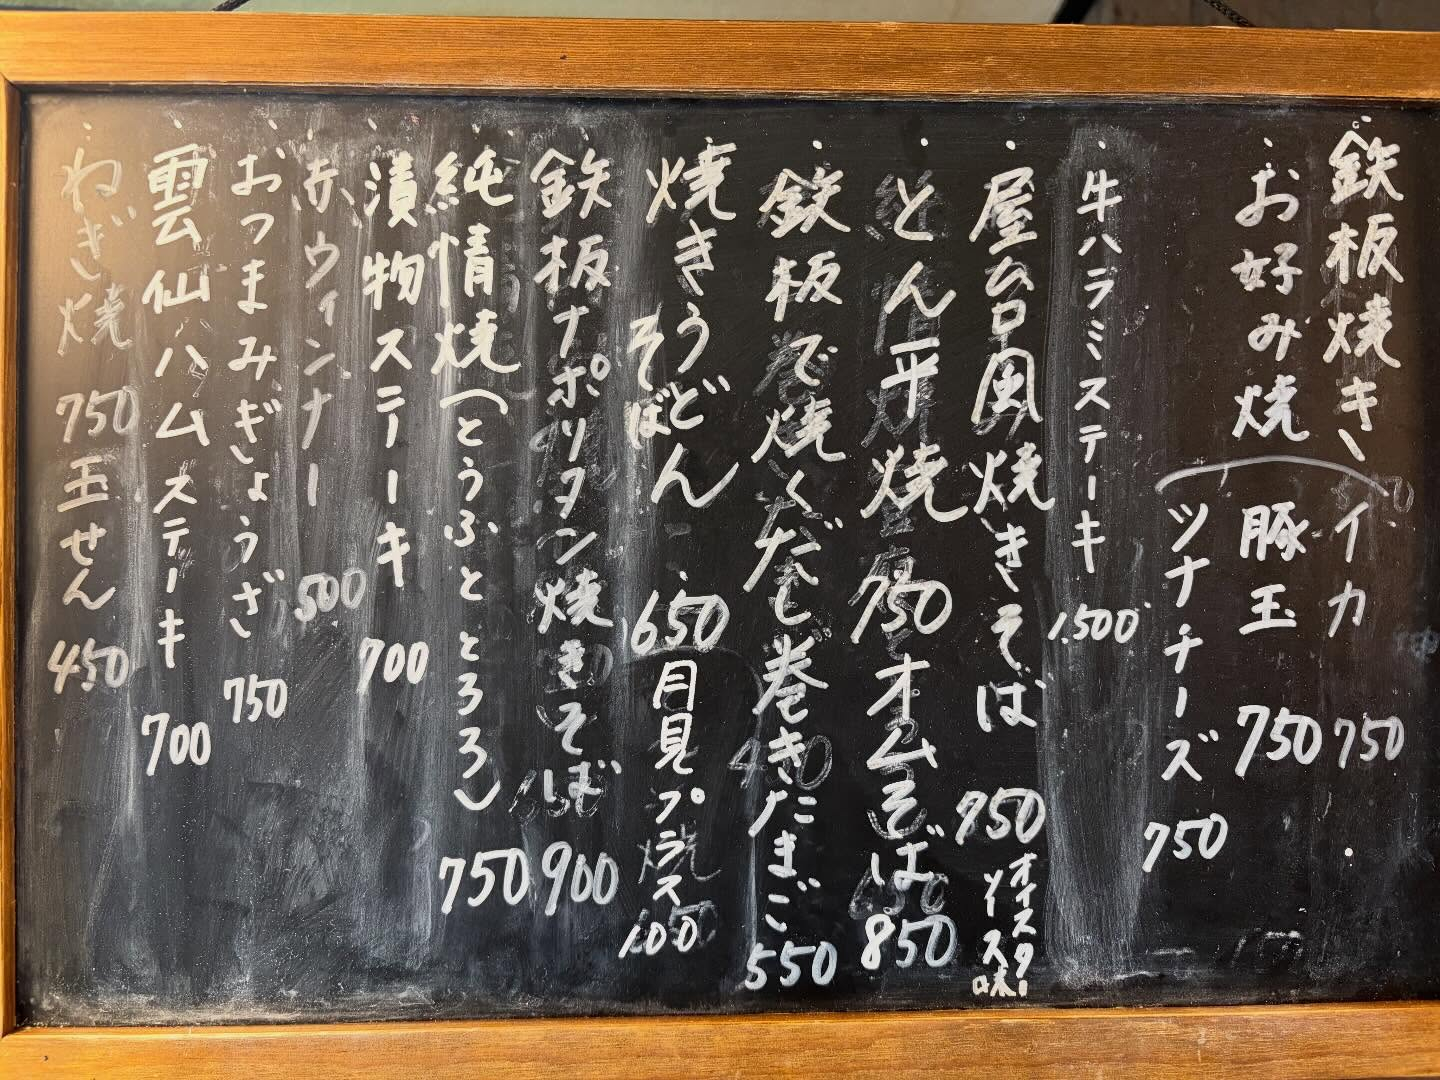 ・鉄板焼き
イカ 750
・お好み焼
豚玉 750
ツナチーズ 750
・牛ハラミステーキ 1,500
・屋台風焼きそば 750
オイスターソース味
・とん平焼 750 オムそば 850
・鉄板で焼くだし巻きたまご 550
・焼きうどん・650 月見プラス100
そば
・鉄板ナポリタン焼きそば 900
・純情焼(とうふととろろ) 750
・漬物ステーキ 700
・赤ウィンナー 500
・おつまみぎょうざ 750
・雲仙ハムステーキ 700
・ねぎ焼 750 玉せん 450